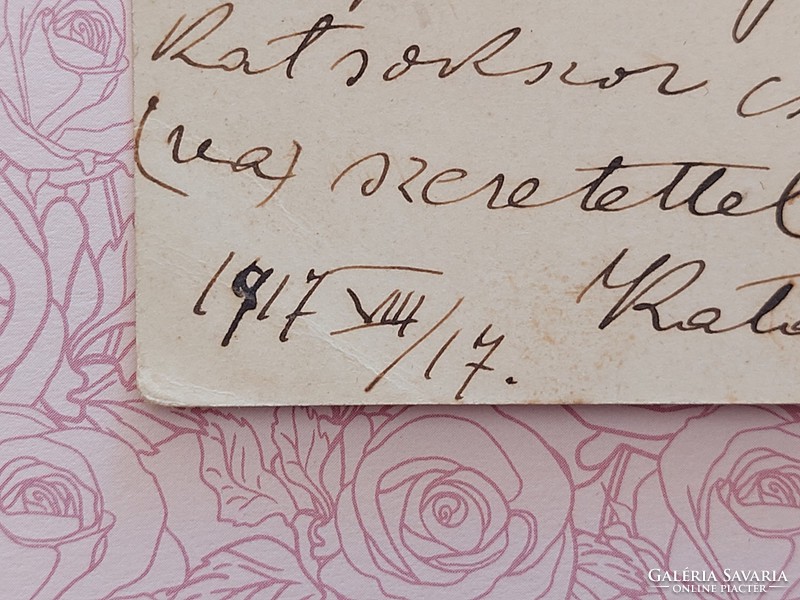 katsokszor
(va) szeretettel
1917 VIII/17. Kató
GALÉRIA SAVARIA
ONLINE PIACTÉR